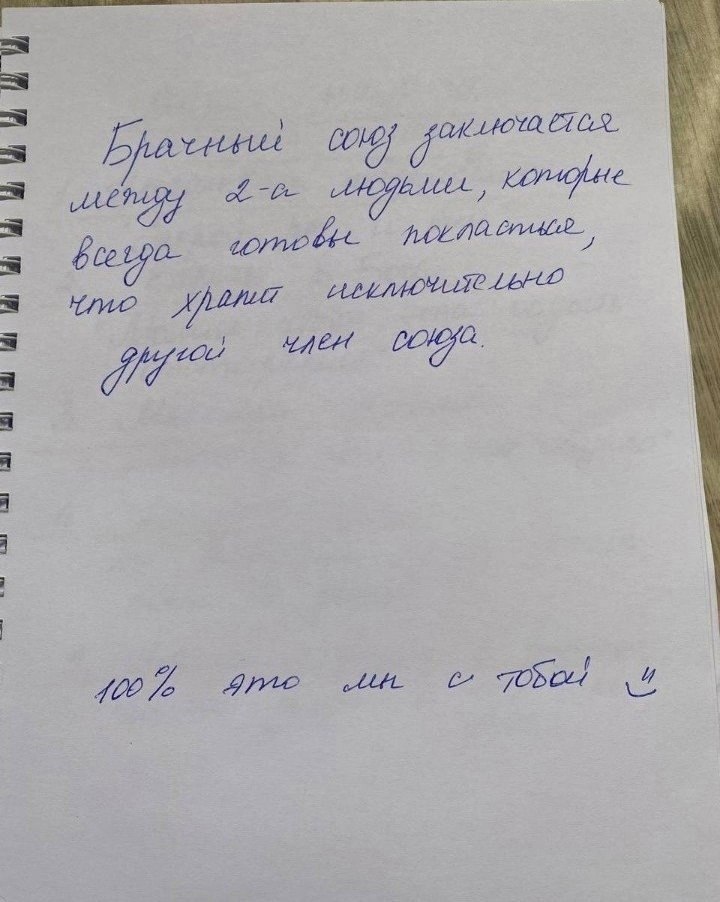 Брачный союз заключается
между 2-а людьми, которые
всегда готовы покласться,
что храпит исключительно
другой член союза.
100% это мы с тобой